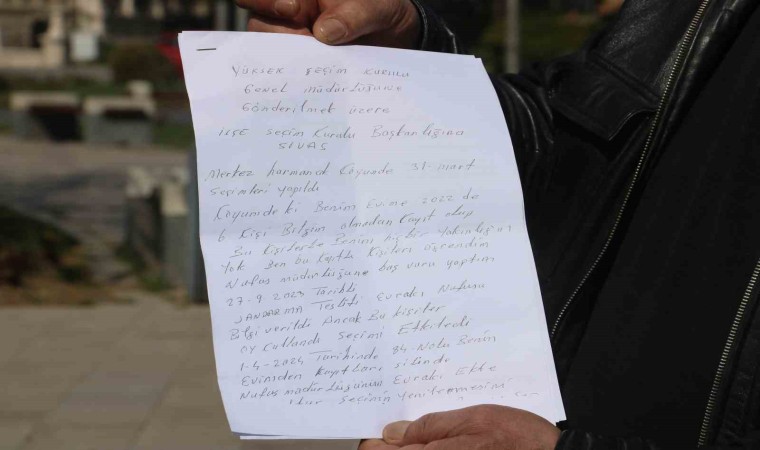 YÜKSEK SEÇİM KURULU
Genel müdürlüğüne
Gönderilmek üzere
İLÇE Seçim Kurulu Başkanlığına
SİVAS
Merkez harmancık Köyünde 31-mart
Seçimleri yapıldı
Köyümdeki Benim Evime 2022 de
6 Kişi Bilgim olmadan Kayıt olup
Bu Kişilerle Benim hiç bir Yakınlığım
Yok Ben bu Kayıtlı Kişileri öğrendim
Nufus müdürlüğüne baş vuru yaptım
27-9 2023 Tarihli
JANDARMA Tesbiti Evrakı Nufusa
Bilgi verildi Ancak Bu kişiler
OY Kullandı Seçimi Etkiledi
1-4-2024 Tarihinde 84 Nolu Benim
Evimden Kayıtları silindi
Nufus müdürlüğünün Evrakı Ekte
Seçimin yenilenmesini